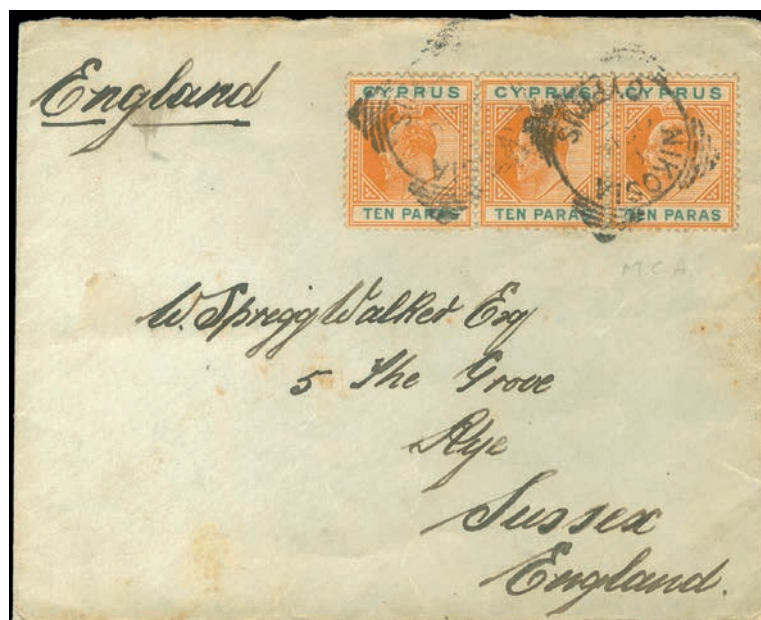 England
CYPRUS CYPRUS CYPRUS
TEN PARAS TEN PARAS TEN PARAS
CYPRUS
NIKOSIA
M.C.A.
W. Sprigg Walker Esq
5 The Grove
Rye
Sussex
England.